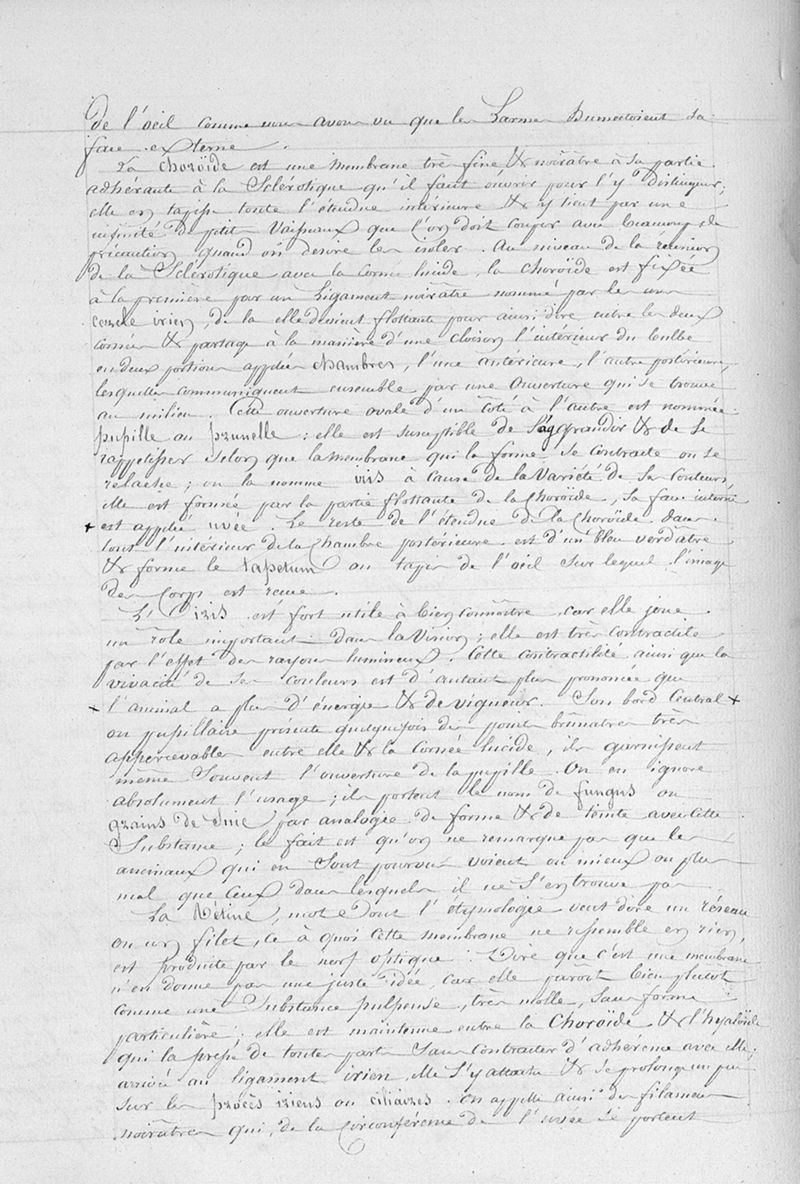 de l'oeil comme nous avons vu que les Larmes Humectoient sa
face externe.
La choroïde est une membrane très fine & noirâtre à sa partie
adhérante à la Sclérotique qu'il faut ouvrir pour l'y distinguer;
elle en tapisse toute l'étendue intérieure & y tient par une
infinité de petits Vaisseaux que l'on doit couper avec beaucoup de
précaution quand on desire les isoler. Au niveau de la réunion
de la Sclérotique avec la Cornée lucide, la choroïde est fixée
à la première par un Ligament noirâtre nommé par les uns
cercle irien, de la elle devient flottante pour ainsi dire entre les deux
cornées & partage à la manière d'une cloison l'intérieur du bulbe
en deux portions appelées chambres, l'une antérieure, l'autre postérieure,
lesquelles communiquent ensemble par une Ouverture qui se trouve
au milieu. Cette ouverture ovale d'un coté à l'autre est nommée
pupille ou prunelle: elle est susceptible de s'aggrandir & de se
rappetisser selon que la membrane qui la forme se contracte ou se
relache; on la nomme iris à cause de la Variété de ses Couleurs,
elle est formée par la partie flottante de la Choroïde, sa face interne
+ est appelée uvée. Le reste de l'étendue de la Choroïde dans
tout l'intérieur de la Chambre postérieure est d'un bleu verdâtre
& forme le tapetum ou tapis de l'oeil sur lequel l'image
des Corps est recue.
L'iris est fort utile à bien connoitre car elle joue
un rôle important dans la Vision; elle est très contractile
par l'effet des rayons lumineux. Cette contractilité ainsi que la
vivacité de ses Couleurs est d'autant plus prononcée que
+ l'animal a plus d'énergie & de vigueur. Son bord Central +
ou pupillaire présente quelquefois des points brunâtres très
appercevables entre elle & la Cornée lucide, ils garnissent
meme Souvent l'ouverture de la pupille. On en ignore
absolument l'usage; ils portent le nom de fungus ou
grains de Suie par analogie de forme & de teinte avec cette
Substance; le fait est qu'on ne remarque pas que les
animaux qui en Sont pourvus voient ou mieux ou plus
mal que Ceux dans lesquels il ne s'en trouve pas.
La Rétine, mot dont l'étymologie veut dire un réseau
ou un filet, ce à quoi cette membrane ne ressemble en rien,
est produite par le nerf optique. Dire que c'est une membrane
n'en donne pas une juste idée, car elle paroit bien plutot
comme une Substance pulpeuse, très molle, Sans forme
particulière; elle est maintenue entre la Choroïde & l'hyaloïde
qui la presse de toutes parts Sans contracter d'adhérence avec elle;
arrivée au ligament irien, elle S'y attache & se prolonge un peu
sur les procès iriens ou ciliaires. On appelle ainsi des filamens
noirâtres qui, de la Circonférence de l'uvée se portent